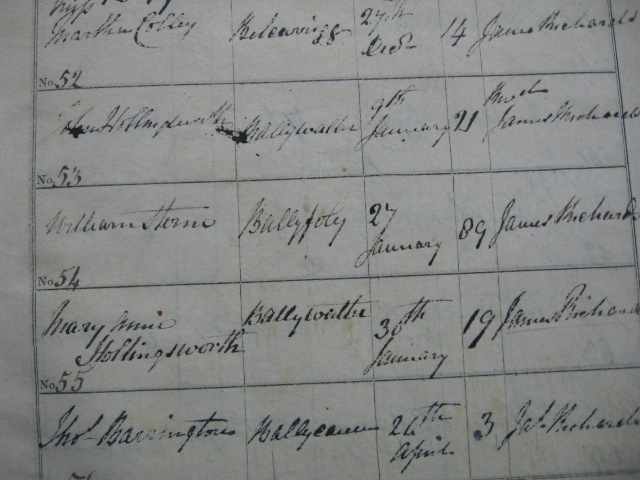 Martha Colley 27th Decr 14 James Richards
No. 52
John Hollingsworth Ballywalter 9th January 21 James Richards
No. 53
William Storm Ballyfoly 27 January 89 James Richards
No. 54
Mary Anne Hollingsworth Ballywalter 30th January 19 James Richards
No. 55
Thos. Barrington 26th April 3 Jas. Richards